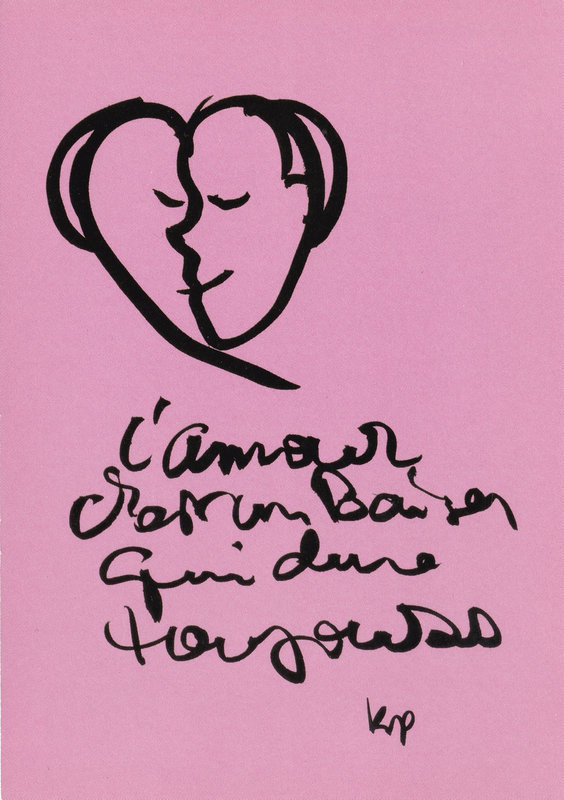 l'amour
c'est un Baiser
qui dure
toujours